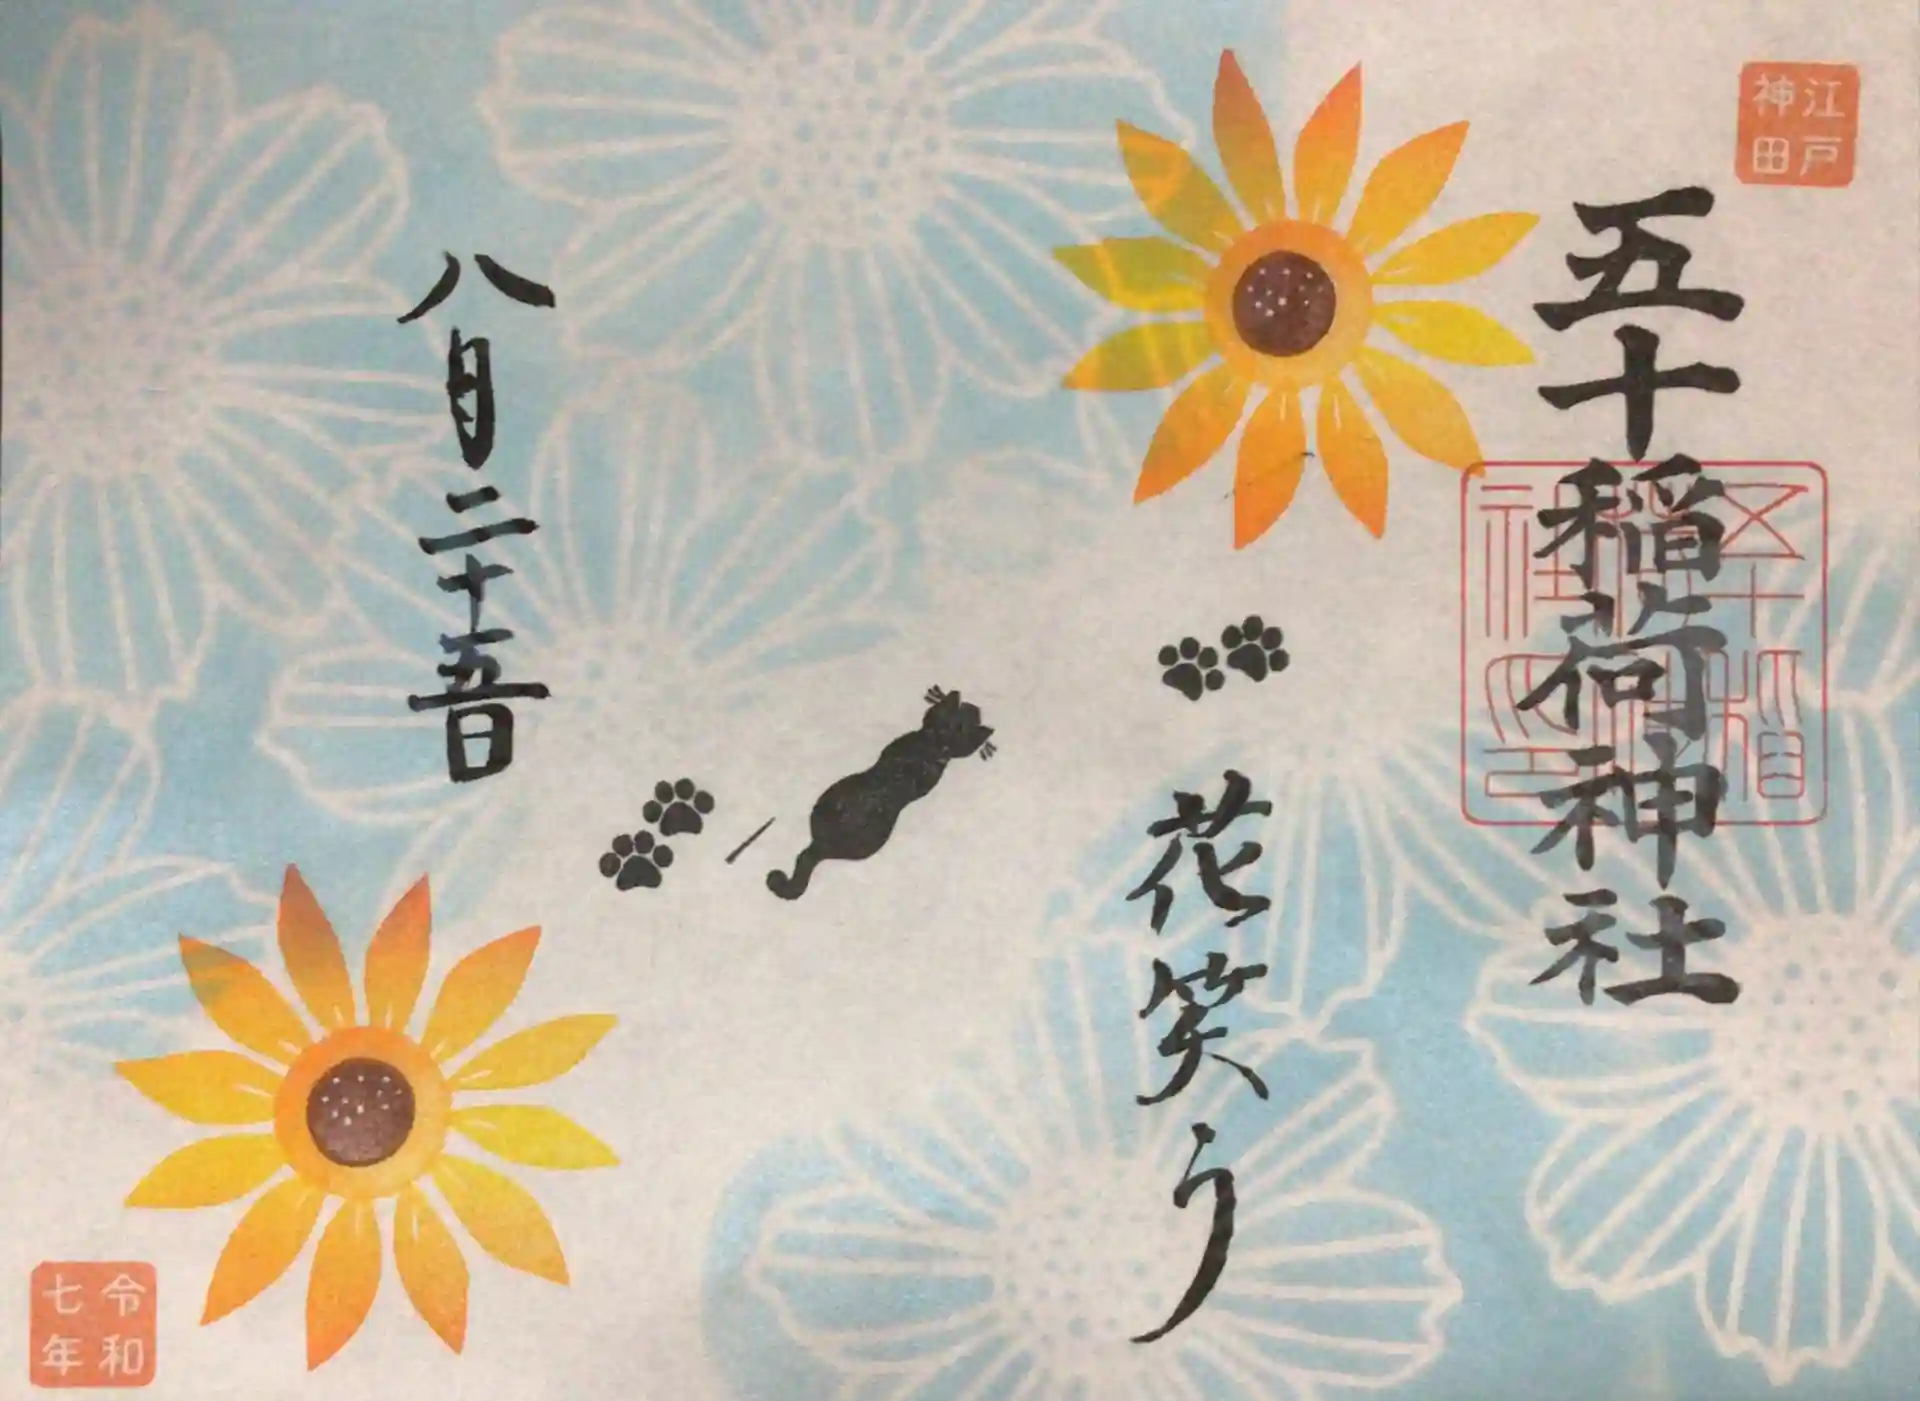 江戸
神田
五十稲荷神社
五十稲
荷神
社印
花笑う
八月二十五日
令和
七年